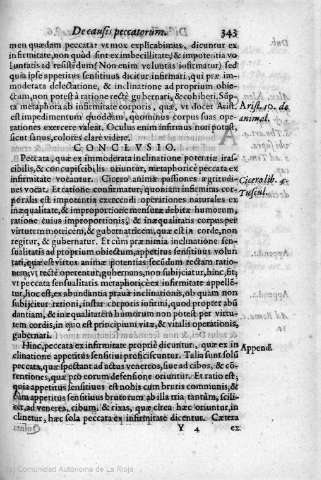 De causis peccatorum. 343
men quædam peccata: vt mox explicabimus, dicuntur ex
infirmitate, non quòd sint ex imbecillitate, & impotentia vo
luntatis ad resistendum: Non enim voluntas infirmatur, sed
quia ipse appetitus sensitiuus dicitur infirmari, qui præ im-
moderata delectatione, & inclinatione ad proprium obie-
ctum, non potest à ratione rectè gubernari, & cohiberi, Súp-
ta metaphora ab infirmitate corporis, quæ, vt docet Arist.
est impedimentum quoddam, quominus corpus suas ope-
rationes exercere valeat. Oculus enim infirmus non potest,
sicut sanus, colores clarè videre.
Arist. 10. de
animal.
CONCLVSIO.
Peccata, quæ ex immoderata inclinatione potentiæ iras-
cibilis, & concupiscibilis oriuntur, metaphoricè peccata ex
infirmitate vocantur. Cicero animæ passiones ægritudi-
nes vocat. Et ratione confirmatur, quoniam infirmitas cor-
poralis est impotentia exercendi operationes naturales ex
inæqualitate, & improportione mensuræ debitæ humorum,
ratione cuius improportionis, & inæqualitatis corpus per
virtutem motiuam, & gubernatricem, quæ est in corde, non
regitur, & gubernatur. Et cùm præ nimia inclinatione sen-
sualitatis ad proprium obiectum, appetitus sensitiuus volun
tati, quæ est virtus animæ potentias secundum rectam ratio-
nem, vt rectè operentur, gubernans, non subijciatur, hinc fit,
vt peccata sensualitatis metaphoricè ex infirmitate appelle-
tur, hoc est, ex abundantia prauæ inclinationis, ob quam non
subijcitur rationi, instar corporis infirmi, quod propter abú
dantiam, & inæqualitatem humorum non potest per virtu-
tem cordis, in quo est principium vitæ, & vitalis operationis,
gubernari.
Cicero lib. 4.
Tuscul.
Hinc, peccata ex infirmitate propriè dicuntur, quæ ex in-
clinatione appetitus sensitiui proficiscuntur. Talia sunt solú
peccata, quæ spectant ad actus venereos, siue ad cibos, & co-
tentiones, quæ pro eorum defensione oriuntur. Et ratio est;
quia appetitus sensitiuus est nobis cum brutis communis, &
sicùm appetitus sensitiuus brutorum ab illa tria tantùm, scili-
cet, ad venerea, cibum, & rixas, quæ circa hæc oriuntur, in-
clinetur, hæc sola peccata ex infirmitate dicentur. Cætera
Append.
Y 4 ex
Comunidad Autónoma de La Rioja